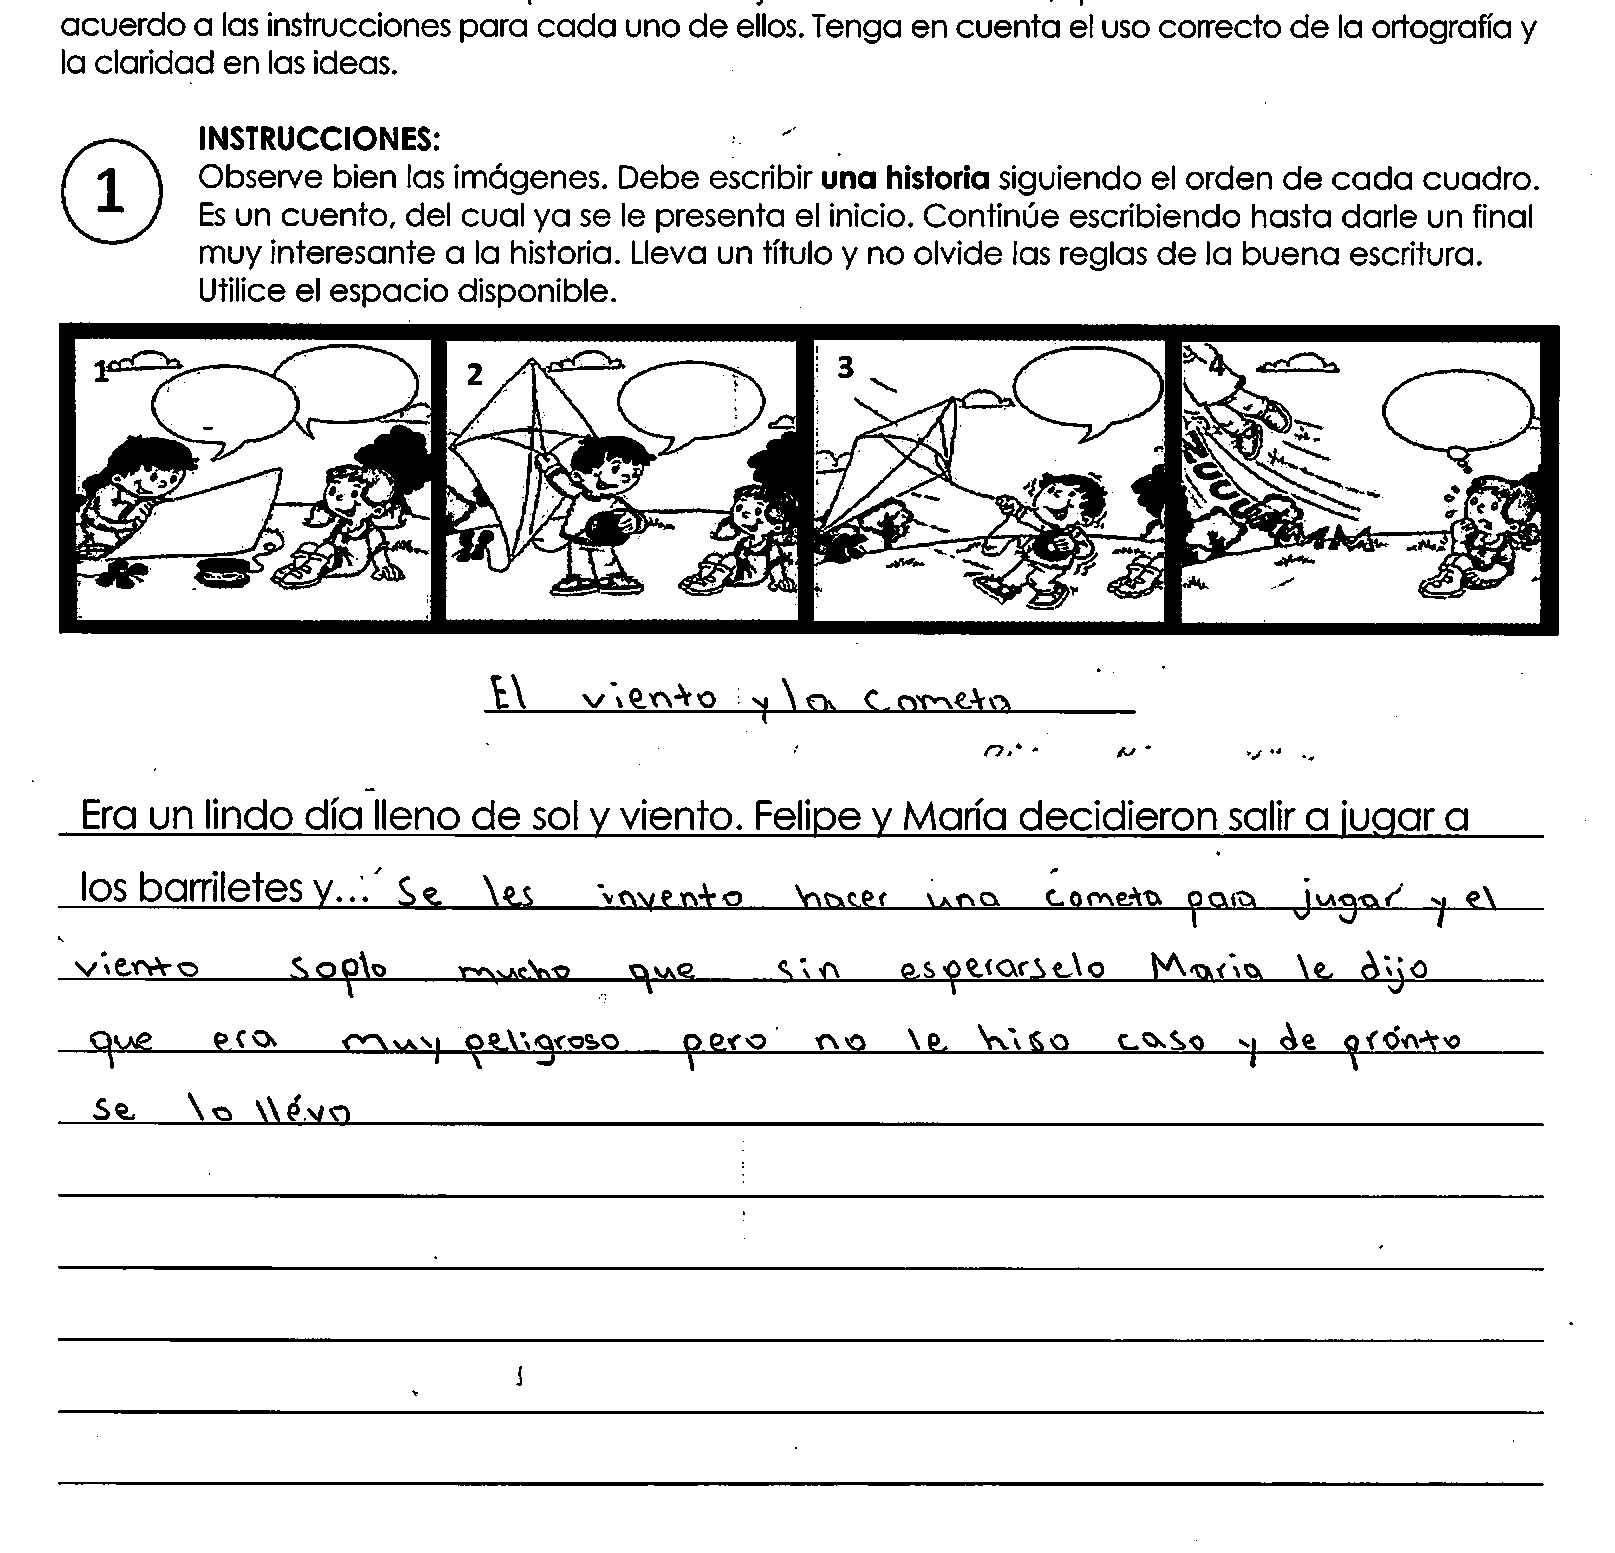 acuerdo a las instrucciones para cada uno de ellos. Tenga en cuenta el uso correcto de la ortografía y
la claridad en las ideas.
1
INSTRUCCIONES:
Observe bien las imágenes. Debe escribir una historia siguiendo el orden de cada cuadro.
Es un cuento, del cual ya se le presenta el inicio. Continúe escribiendo hasta darle un final
muy interesante a la historia. Lleva un título y no olvide las reglas de la buena escritura.
Utilice el espacio disponible.
1 2 3 4
El viento y la cometa
Era un lindo día lleno de sol y viento. Felipe y María decidieron salir a jugar a
los barriletes y... Se les invento hacer una cometa para jugar y el
viento soplo mucho que sin esperarselo Maria le dijo
que era muy peligroso pero no le hiso caso y de prónto
se lo llévo